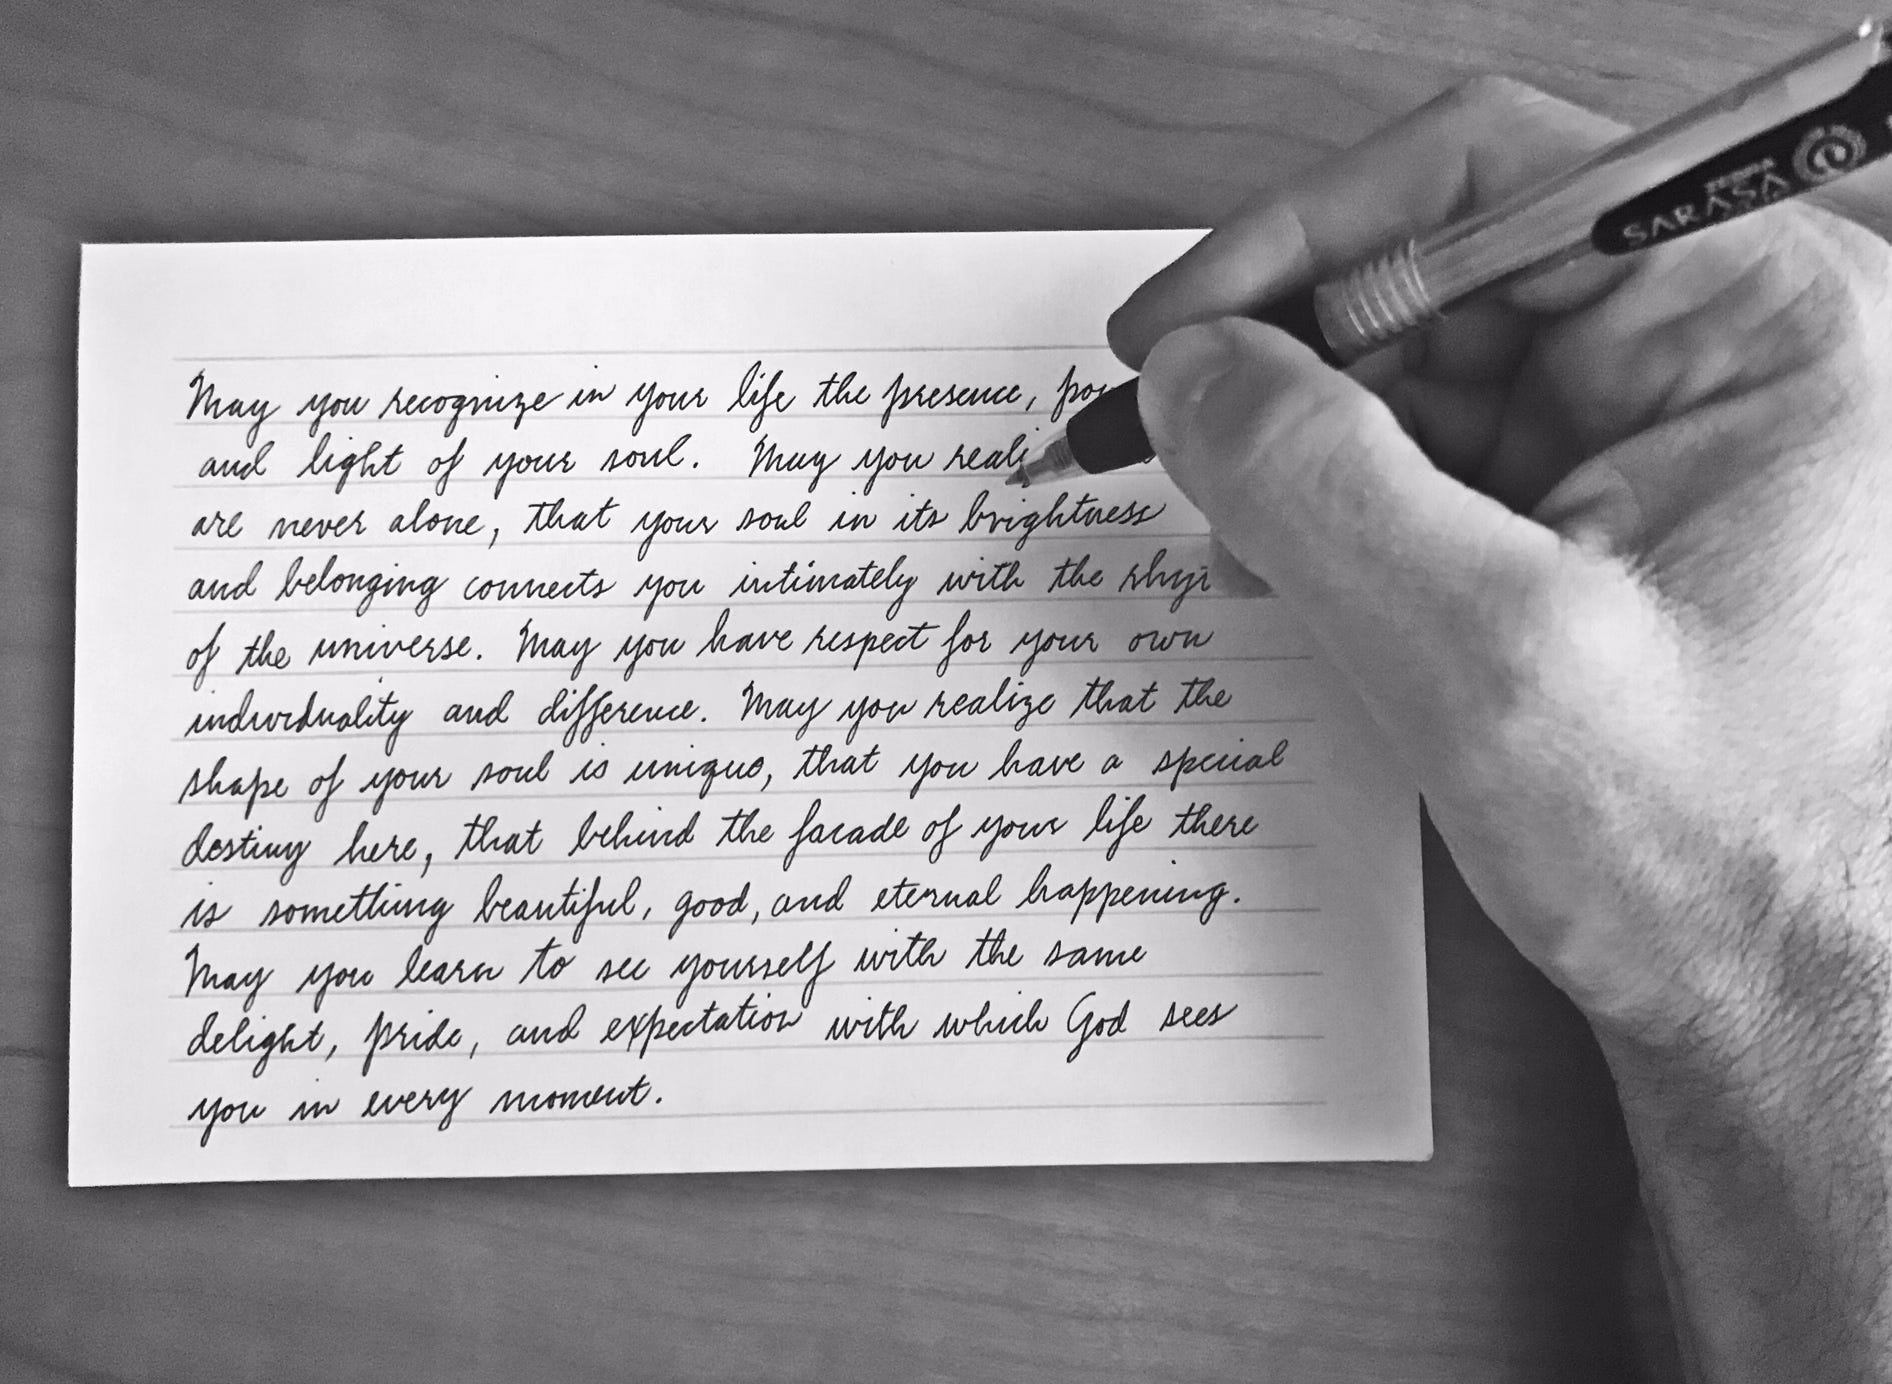 May you recognize in your life the presence,
and light of your soul. May you
are never alone, that your soul in its brightness
and belonging connects you intimately with the
of the universe. May you have respect for your own
individuality and difference. May you realize that the
shape of your soul is unique, that you have a special
destiny here, that behind the facade of your life there
is something beautiful, good, and eternal happening.
May you learn to see yourself with the same
delight, pride, and expectation with which God sees
you in every moment.
ZEBRA
SARASA